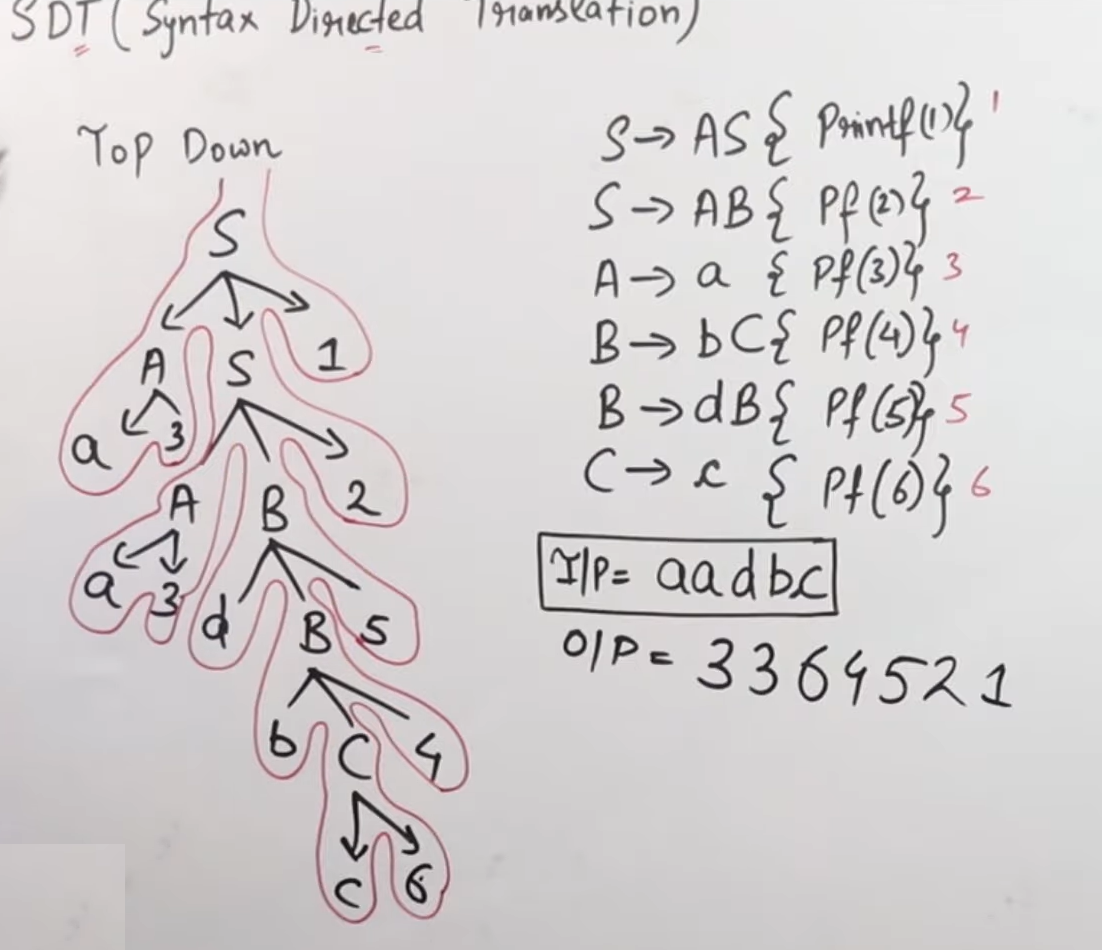 SDT (Syntax Directed Translation)
Top Down
S
A S 1
a 3
A B 2
a 3
d B 5
b C 4
c 6
S → AS { Printf(1)} 1
S → AB { Pf(2)} 2
A → a { Pf(3)} 3
B → bC { Pf(4)} 4
B → dB { Pf(5)} 5
C → c { Pf(6)} 6
I/P = aadbc
O/P = 3364521